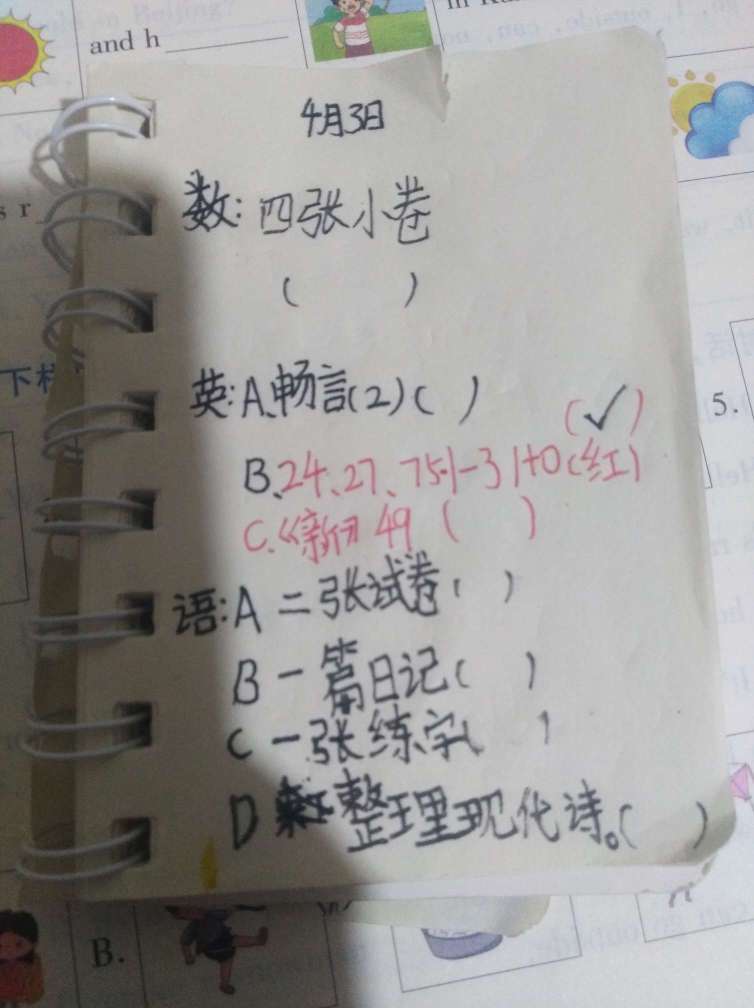 and h
4月3日
数:四张小卷
( )
英:A、畅言(2)( )
(✓)
B、24、27、75.1-31+0(红)
C.《新 49 ( )
语:A 二张试卷( )
B 一篇日记( )
C 一张练字( )
D 整理现代诗。( )
5.
B.